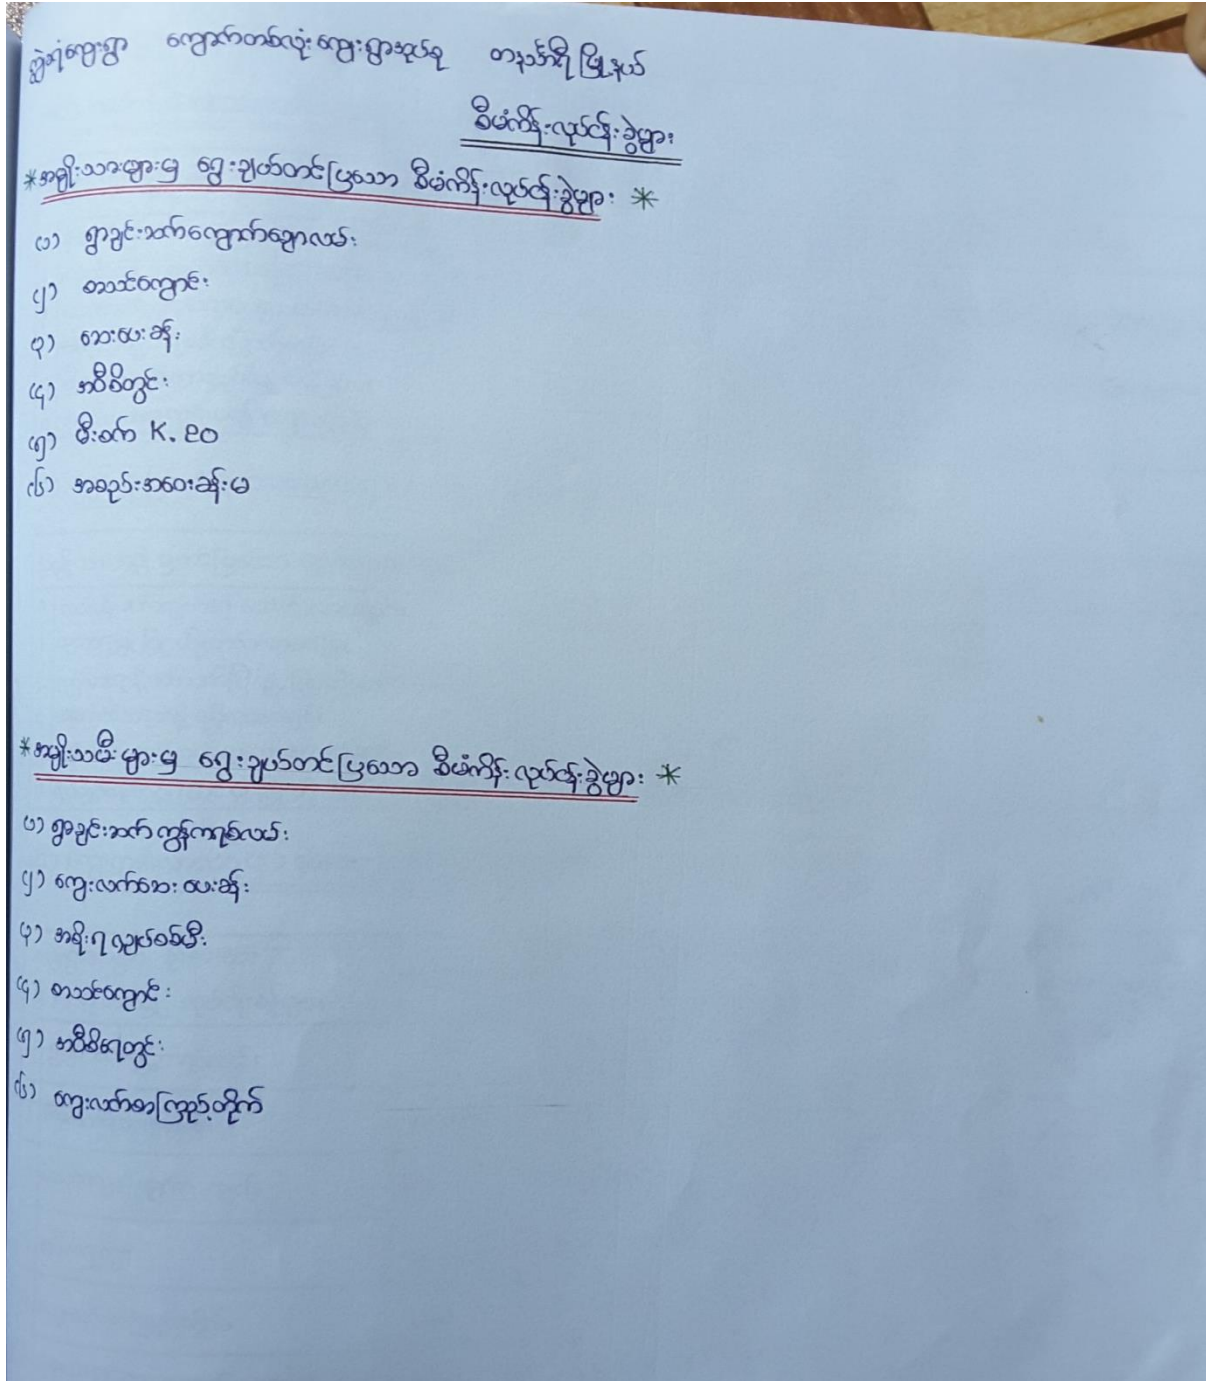 ကျောက်တစ်လုံးကျေးရွာအုပ်စု တနင်္သာရီမြို့နယ်
စီမံကိန်းလုပ်ငန်းခွဲများ
*အမျိုးသားများမှ ရွေးချယ်တင်ပြသော စီမံကိန်းလုပ်ငန်းခွဲများ *
(၁) ရွာချင်းဆက်ကျောက်ချောလမ်း
(၂) စာသင်ကျောင်း
(၃) ဆေးပေးခန်း
(၄) အဝီစိတွင်း
(၅) မီးစက် K.၉၀
(၆) အစည်းအဝေးခန်းမ
*အမျိုးသမီးများမှ ရွေးချယ်တင်ပြသော စီမံကိန်းလုပ်ငန်းခွဲများ *
(၁) ရွာချင်းဆက် ကွန်ကရစ်လမ်း
(၂) ကျေးလက်ဆေးပေးခန်း
(၃) အစိုးရလျှပ်စစ်မီး
(၄) စာသင်ကျောင်း
(၅) အဝီစိရေတွင်း
(၆) ကျေးလက်စာကြည့်တိုက်